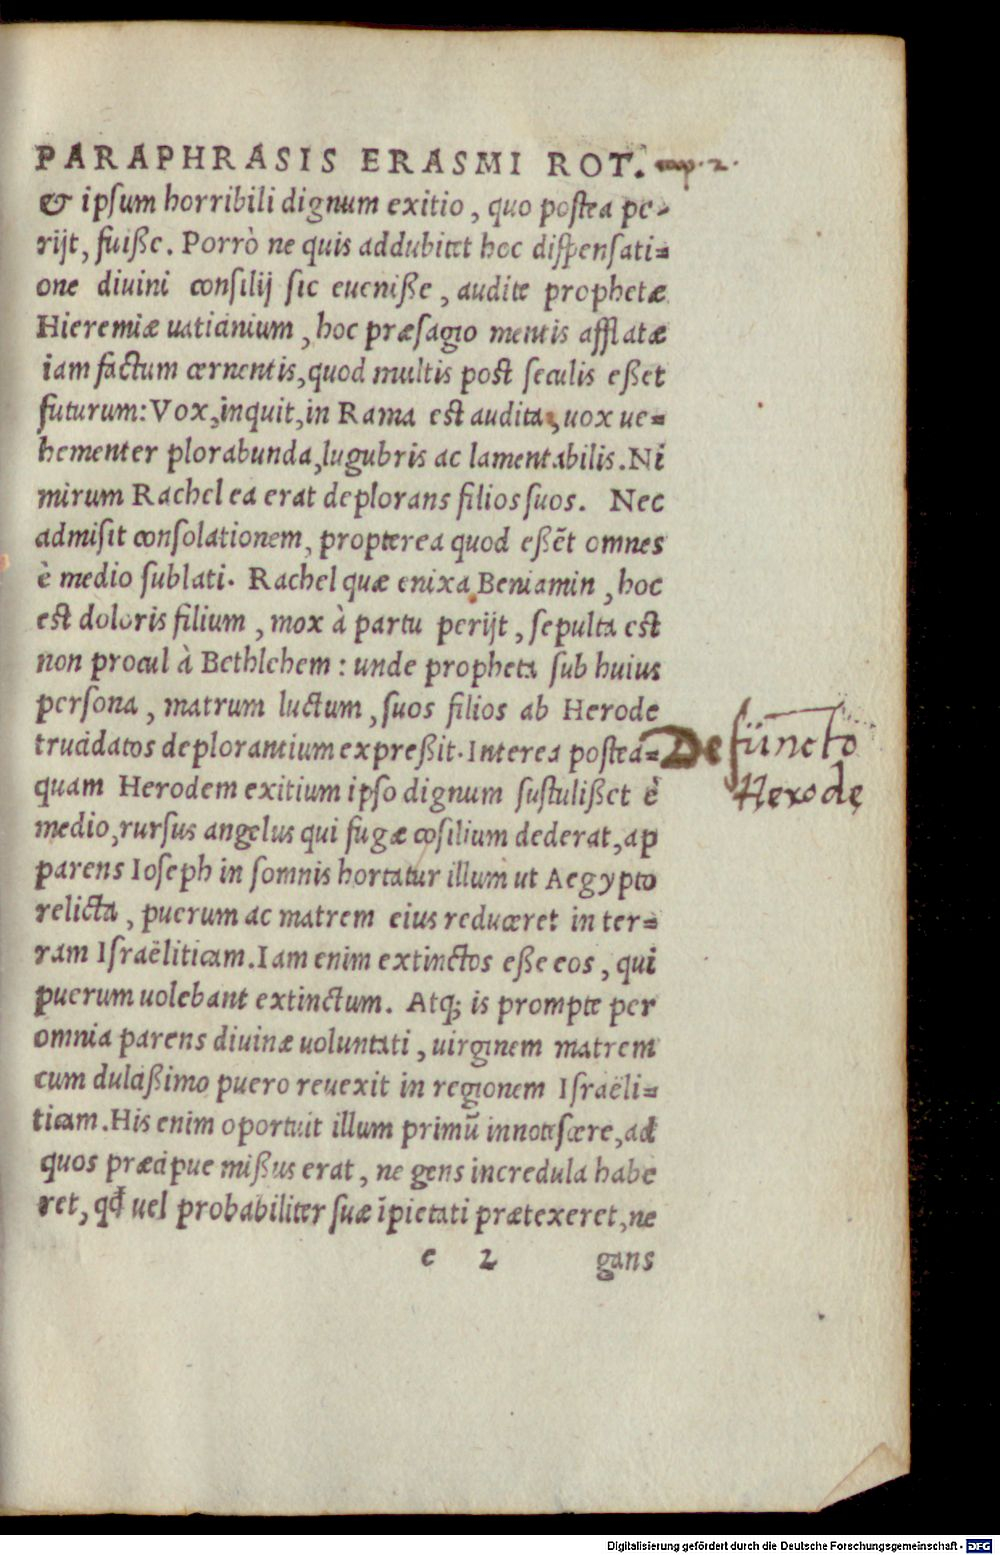 PARAPHRASIS ERASMI ROT. cap. 2.
& ipſum horribili dignum exitio, quo poſtea pe-
rijt, fuiße. Porrò ne quis addubitet hoc diſpenſati=
one diuini conſilij ſic eueniße, audite prophetæ
Hieremiæ uaticinium, hoc præſagio mentis afflatæ
iam factum cernentis, quod multis poſt ſeculis eßet
futurum: Vox, inquit, in Rama eſt audita, uox ue=
hementer plorabunda, lugubris ac lamentabilis. Ni
mirum Rachel ea erat deplorans filios ſuos. Nec
admiſit conſolationem, propterea quod eßēt omnes
è medio ſublati. Rachel quæ enixa Beniamin, hoc
eſt doloris filium, mox à partu perijt, ſepulta eſt
non procul à Bethlehem: unde propheta ſub huius
perſona, matrum luctum, ſuos filios ab Herode
trucidatos deplorantium expreßit. Interea poſtea=
Defüncto
Herode
quam Herodem exitium ipſo dignum ſuſtulißet è
medio, rurſus angelus qui fugæ cōſilium dederat, ap
parens Ioſeph in ſomnis hortatur illum ut Aegypto
relicta, puerum ac matrem eius reduceret in ter=
ram Iſraëliticam. Iam enim extinctos eße eos, qui
puerum uolebant extinctum. Atq; is prompte per
omnia parens diuinæ uoluntati, uirginem matrem
cum dulcißimo puero reuexit in regionem Iſraëli=
ticam. His enim oportuit illum primū innoteſcere, ad
quos præcipue mißus erat, ne gens incredula habe
ret, qđ uel probabiliter ſuæ īpietati prætexeret, ne
e 2 gans
Digitalisierung gefördert durch die Deutsche Forschungsgemeinschaft - DFG